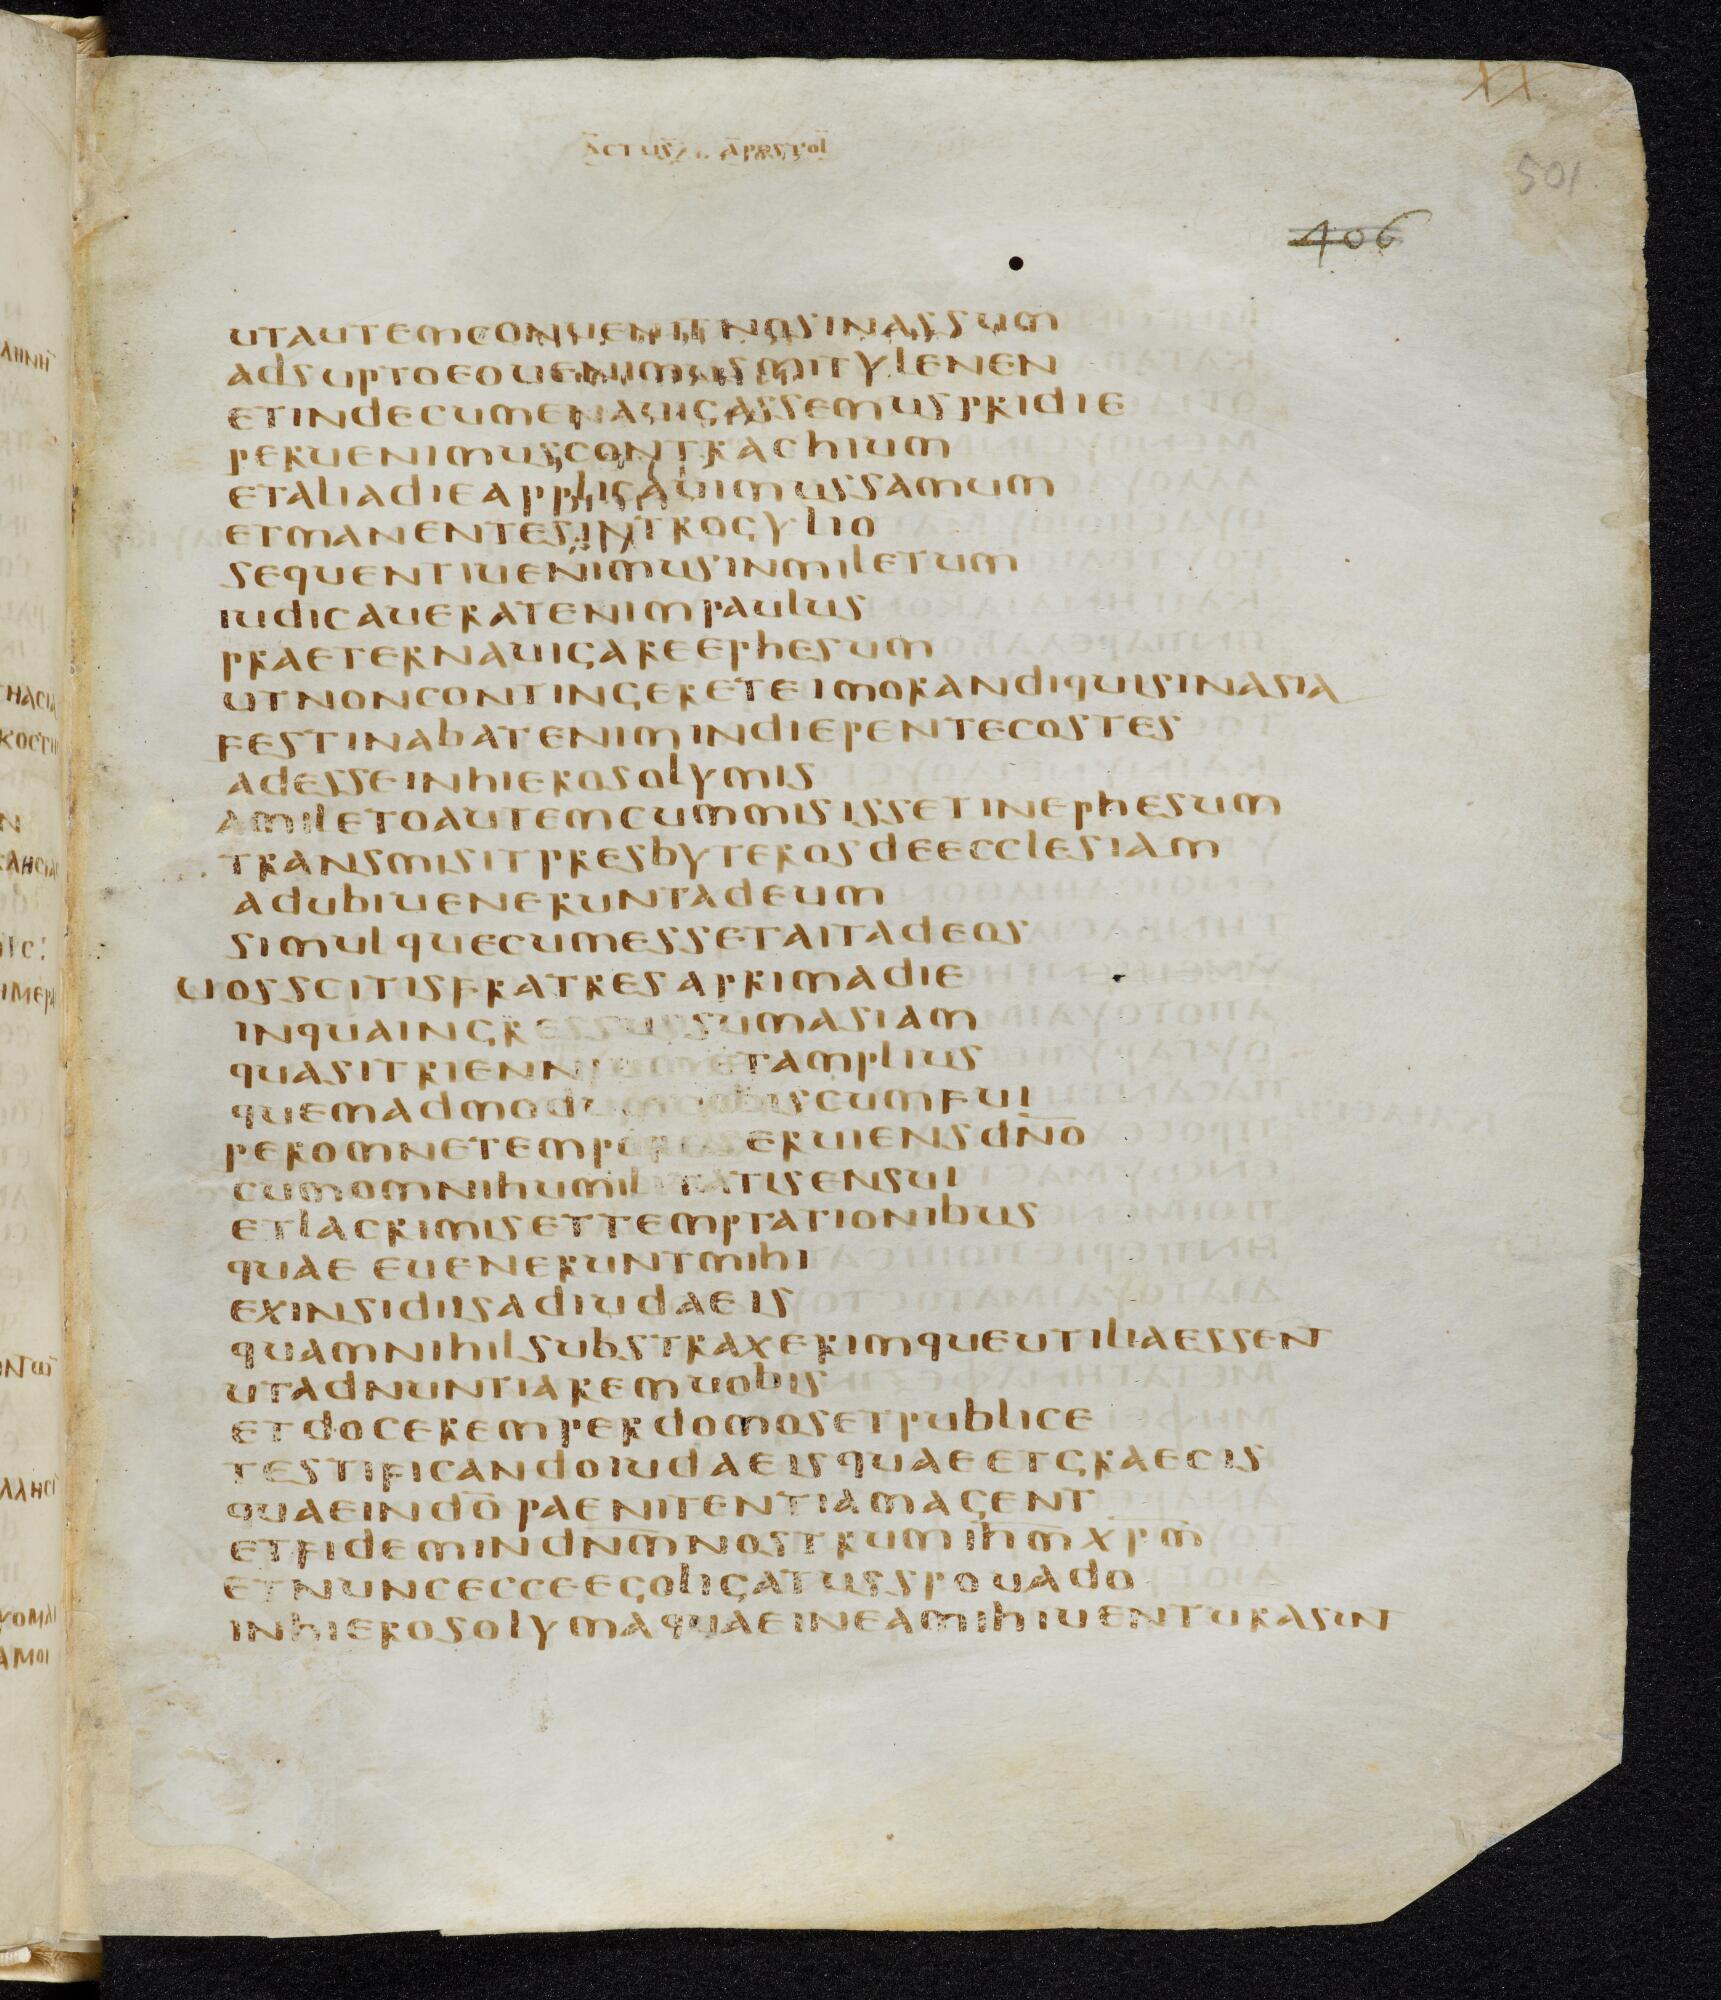 ACTUS APOSTOL
XX.
501
406
UTAUTEMCONUENITNOSINASSUM
ADSUPTOEOUENIMUSMITYLENEN
ETINDECUMENAUIGASSEMUSPRIDIE
PERUENIMUSCONTRACHIUM
ETALIADIEAPPLICAUIMUSSAMUM
ETMANENTESINTROGYLIO
SEQUENTIUENIMUSINMILETUM
IUDICAUERATENIMPAULUS
PRAETERNAUIGAREEPHESUM
UTNONCONTINGERETEIMORANDIQUISINASIA
FESTINABATENIMINDIEPENTECOSTES
ADESSEINHIEROSOLYMIS
AMILETOAUTEMCUMMISISSETINEPHESUM
TRANSMISITPRESBYTEROSDEECCLESIAM
ADUBIUENERUNTADEUM
SIMULQUECUMESSETAITADEOS
UOSSCITISFRATRESAPRIMADIE
INQUAINGRESSUSSUMASIAM
QUASITRIENNIUMETAMPLIUS
QUEMADMODUMUOBISCUMFUI
PEROMNETEMPORESERUIENSDN̅O
CUMOMNIHUMILITATISENSUI
ETLACRIMISETTEMPTATIONIBUS
QUAE EUENERUNTMIHI
EXINSIDIISADIUDAEIS
QUAMNIHILSUBSTRAXERIMQUEUTILIAESSENT
UTADNUNTIAREMUOBIS
ETDOCEREMPERDOMOSETPUBLICE
TESTIFICANDOIUDAEISQUAEETGRAECIS
QUAEINDO̅ PAENITENTIAMAGENT
ETFIDEMINDN̅M̅NOSTRUMIH̅M̅XP̅M̅
ETNUNCECCEEGOLIGATUSSPO UADO
INHIEROSOLYMAQUAEINEAMIHIUENTURASUNT